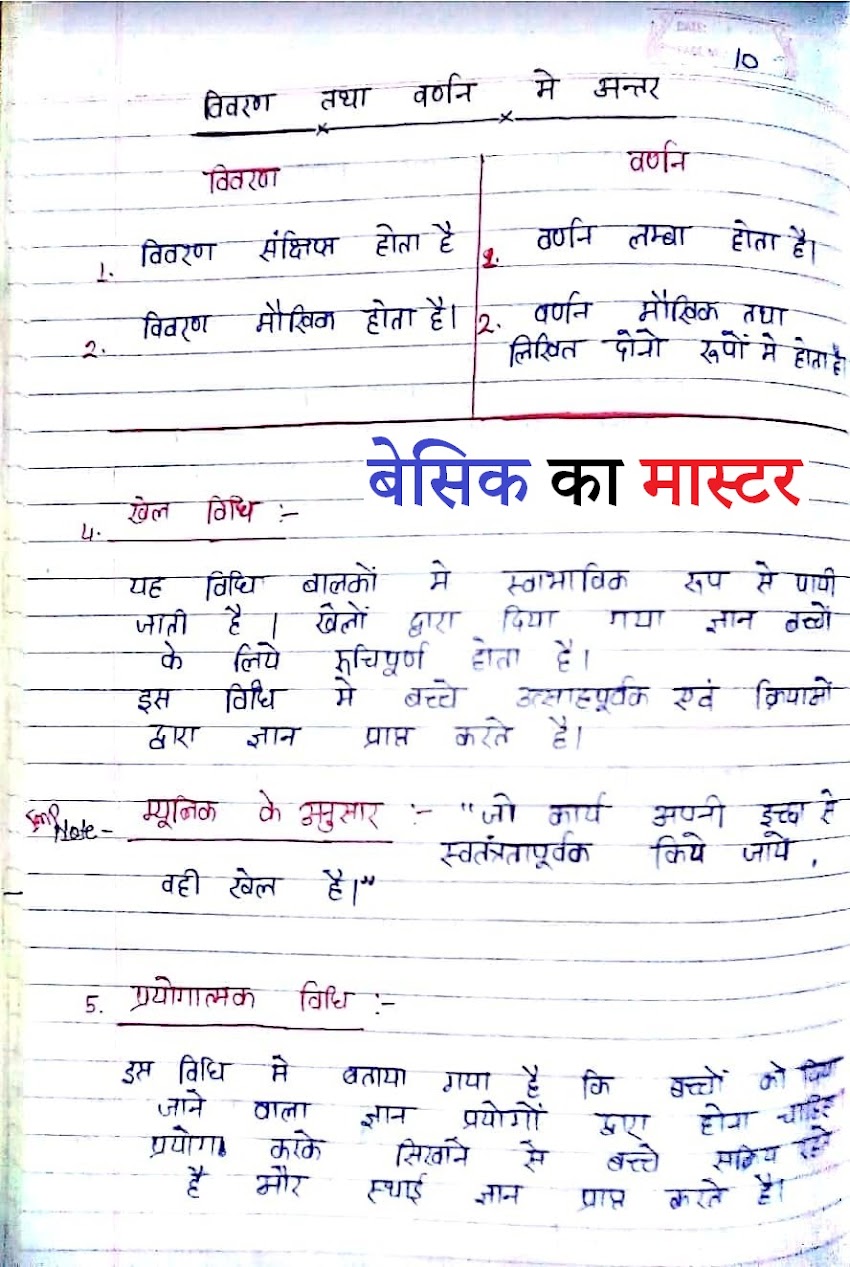 10
विवरण तथा वर्णन मे अन्तर
विवरण
वर्णन
1. विवरण संक्षिप्त होता है
1. वर्णन लम्बा होता है।
2. विवरण मौखिक होता है।
2. वर्णन मौखिक तथा
लिखित दोनो रूपों मे होता है
बेसिक का मास्टर
4. खेल विधि :-
यह विधि बालकों मे स्वाभाविक रूप से पायी
जाती है । खेलों द्वारा दिया गया ज्ञान बच्चों
के लिये रूचिपूर्ण होता है।
इस विधि मे बच्चे उत्साहपूर्वक एवं क्रियाओं
द्वारा ज्ञान प्राप्त करते है।
Imp Note - म्यूनिक के अनुसार :- "जो कार्य अपनी इच्छा से
स्वतंत्रतापूर्वक किये जाये ,
वही खेल है।"
5. प्रयोगात्मक विधि :-
इस विधि मे बताया गया है कि बच्चों को दिया
जाने वाला ज्ञान प्रयोगों द्वारा होना चाहिए
प्रयोग करके सिखाने से बच्चे सक्रिय रहते
है और स्थाई ज्ञान प्राप्त करते है।